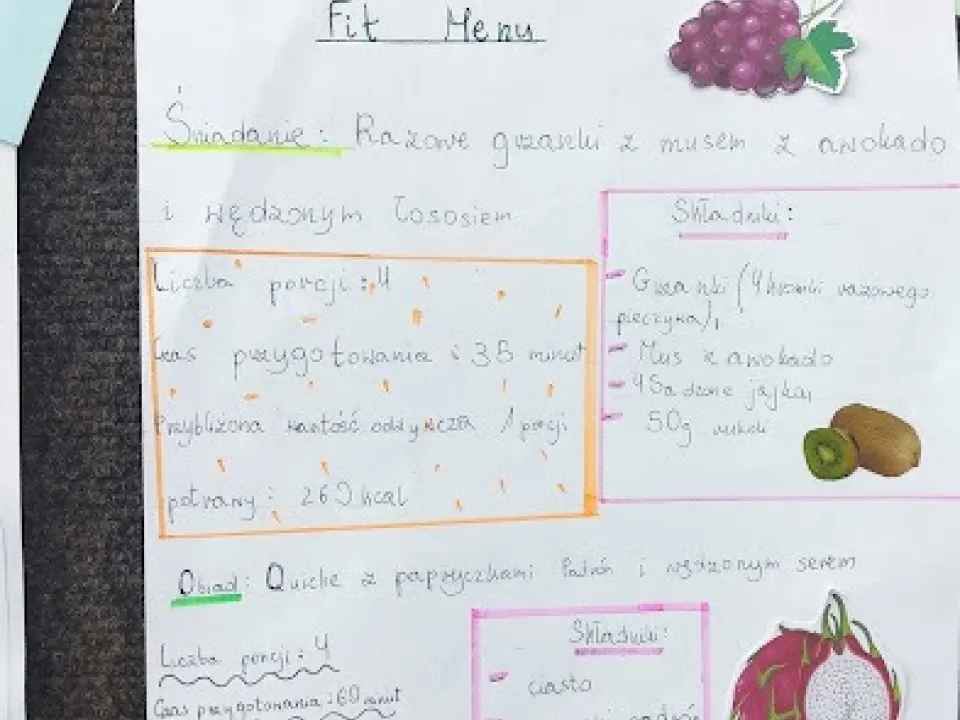 Fit Menu
Śniadanie: Razowe grzanki z musem z awokado
i wędzonym łososiem
Składniki:
Liczba porcji: 4
- Grzanki (4 kromki razowego
pieczywa),
Czas przygotowania: 35 minut
- Mus z awokado
- 4 Sadzone jajka,
Przybliżona wartość odżywcza 1 porcji
- 50g rukoli
potrawy: 269 kcal
Obiad: Quiche z papryczkami Padrón i wędzonym serem
Składniki:
Liczba porcji: 4
- ciasto
Czas przygotowania: 60 minut